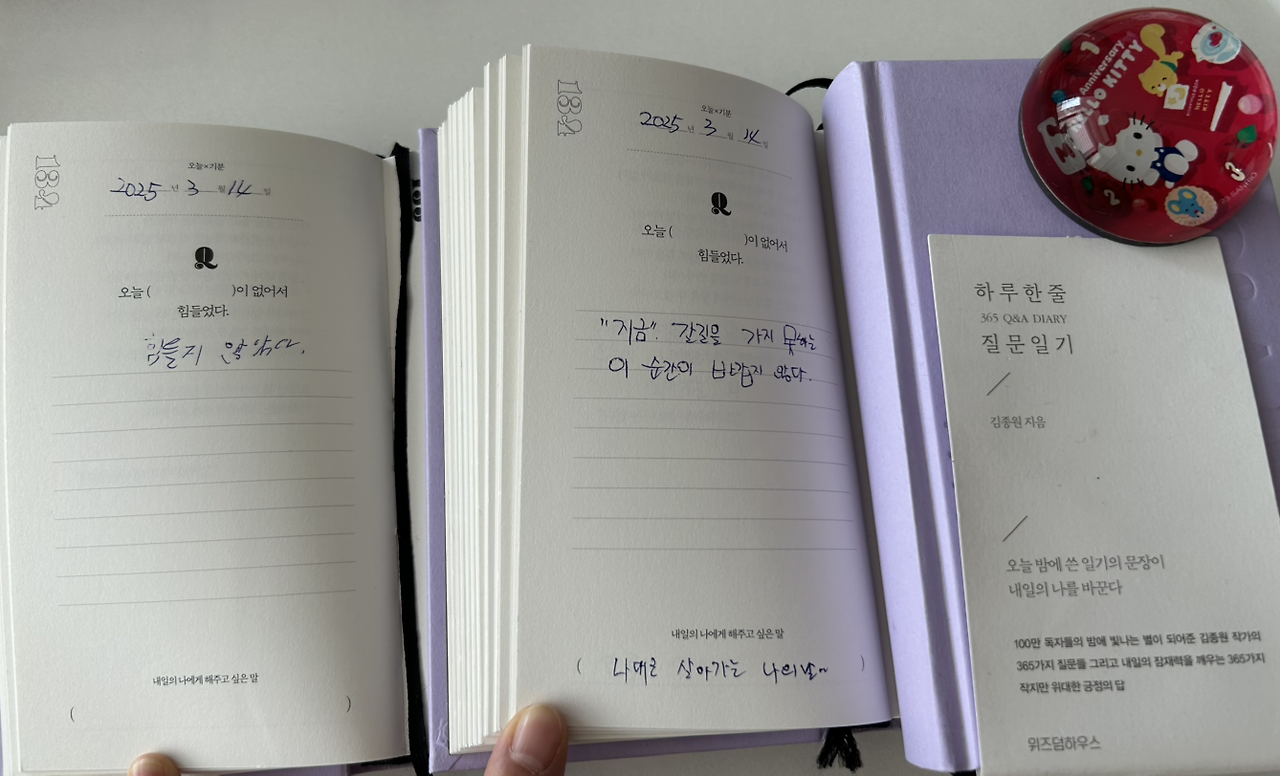 134
오늘×기분
2025년 3월 14일
Q
오늘 (                )이 없어서
힘들었다.
힘들지 않았다.
내일의 나에게 해주고 싶은 말
(                )
134
오늘×기분
2025년 3월 14일
Q
오늘 (                )이 없어서
힘들었다.
"지금". 갈길을 가지 못하는
이 순간이 바람지 않다.
내일의 나에게 해주고 싶은 말
( 나대로 살아가는 나의 날~ )
Anniversary
HELLO KITTY
1
2
3
하루 한 줄
365 Q&A DIARY
질문 일기
김종원 지음
오늘 밤에 쓴 일기의 문장이
내일의 나를 바꾼다
100만 독자들의 밤에 빛나는 별이 되어준 김종원 작가의
365가지 질문들 그리고 내일의 잠재력을 깨우는 365가지
작지만 위대한 긍정의 답
위즈덤하우스